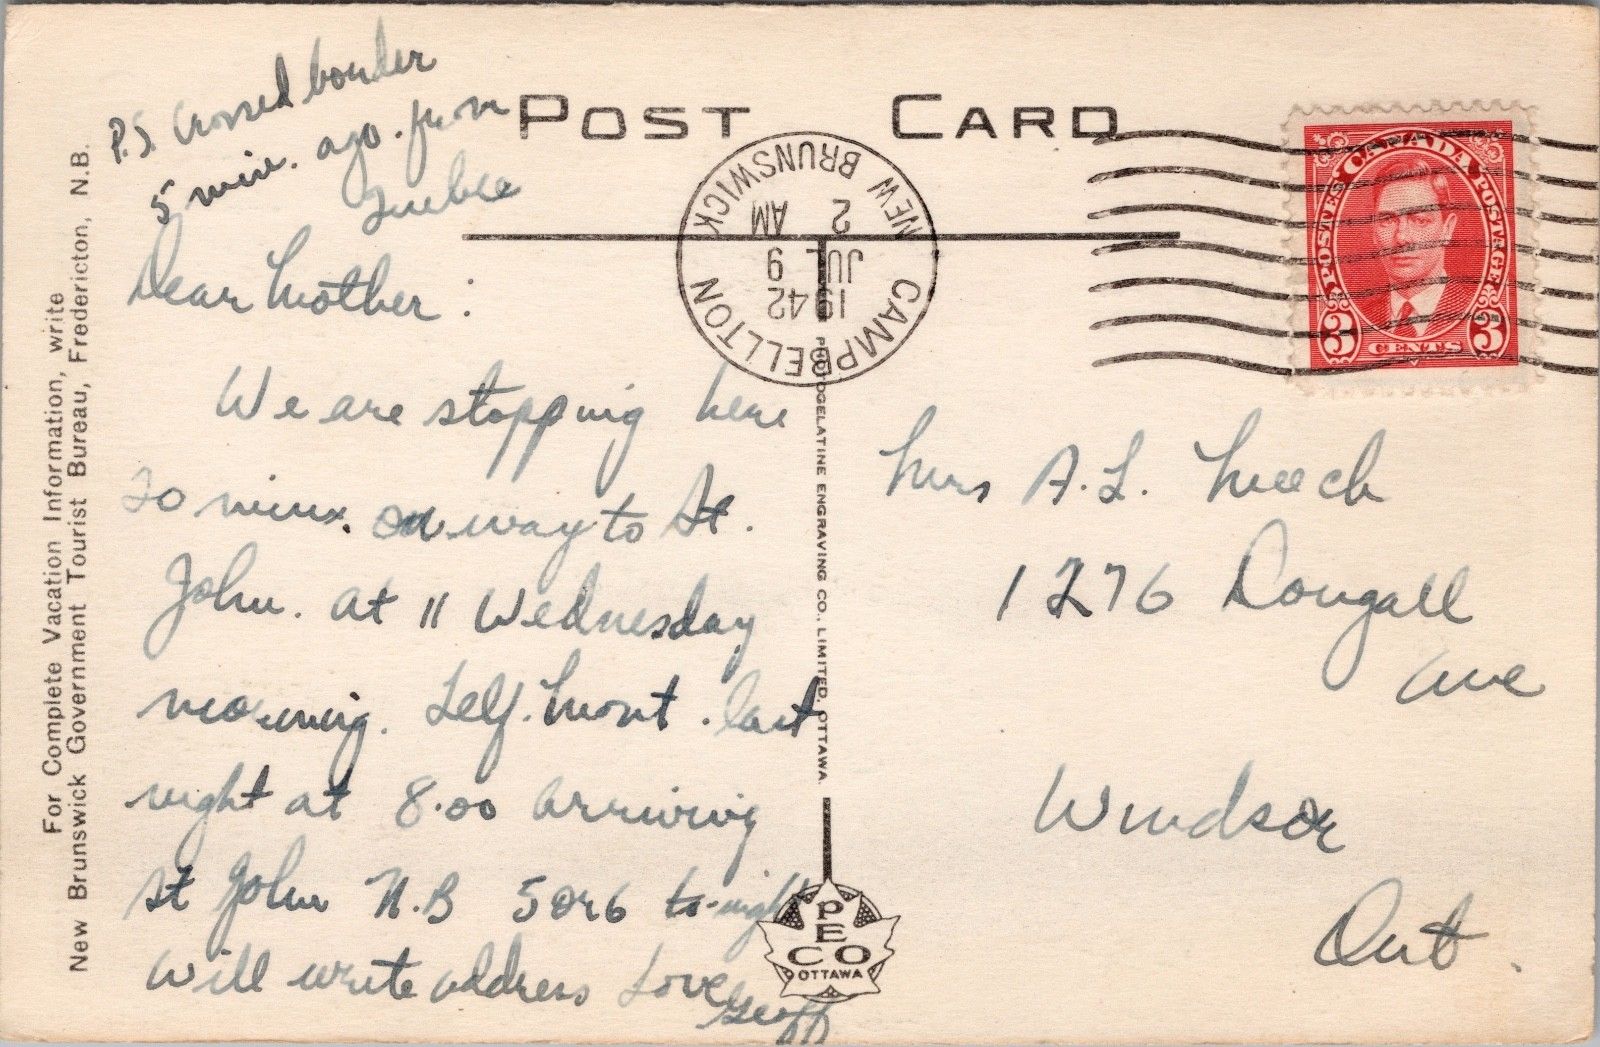 POST CARD
P.S. Crossed border
5 min. ago. from
Quebec
Dear Mother:
We are stopping here
20 mins. on way to St.
John. at 11 Wednesday
morning. Left. Mont. last
night at 8.00 arriving
St John N.B 5 or 6 to-night
will write address Love
Geoff
For Complete Vacation Information, write
New Brunswick Government Tourist Bureau, Fredericton, N.B.
CAMPBELLTON
NEW BRUNSWICK
2
AM
JUL 9
1942
PHOTOGELATINE ENGRAVING CO., LIMITED, OTTAWA.
PECO
OTTAWA
CANADA
POSTES POSTAGE
3 CENTS 3
Mrs A.L. Meech
1276 Dougall
Ave
Windsor
Ont.